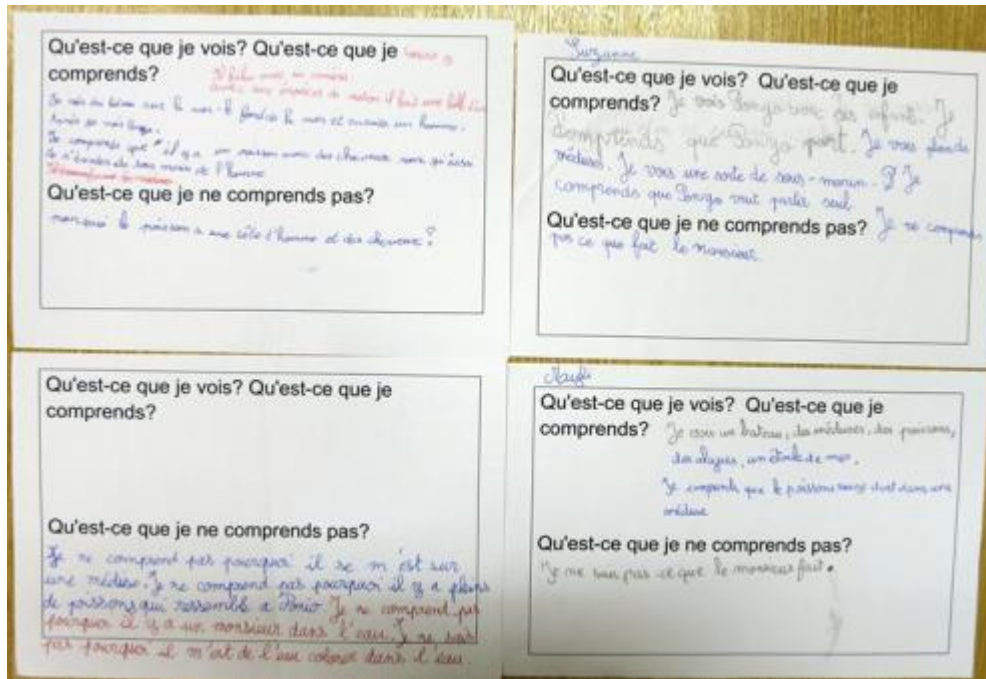 Qu'est-ce que je vois? Qu'est-ce que je
comprends?
Je vois un bateau sur la mer. le fond de la mer et ensuite un homme.
Je comprends que il y a un poisson avec des cheveux
de l'homme
Qu'est-ce que je ne comprends pas?
pourquoi le poisson a une tête d'homme et des cheveux?
Suzanne
Qu'est-ce que je vois? Qu'est-ce que je
comprends? Je vois Pongo avec ses enfants. Je
comprends que Pongo part. Je vois plein de
méduse. Je vois une sorte de sous-marin. Je
comprends que Pongo veut partir seul.
Qu'est-ce que je ne comprends pas? Je ne comprends
pas ce que fait le monsieur.
Qu'est-ce que je vois? Qu'est-ce que je
comprends?
Qu'est-ce que je ne comprends pas?
Je ne comprend pas pourquoi il se m'est sur
une méduse. Je ne comprend pas pourquoi il y a pleins
de poissons qui ressemble a Je ne comprend pas
pourquoi il y a un monsieur dans l'eau. Je ne sais
pas pourquoi il m'est de l'eau colorer dans l'eau.
Qu'est-ce que je vois? Qu'est-ce que je
comprends? Je vois un bateau, des méduses, des poissons,
des algues, un étoile de mer.
Je comprends que le poisson rouge dort dans une
méduse
Qu'est-ce que je ne comprends pas?
Je ne sais pas ce que le monsieur fait.